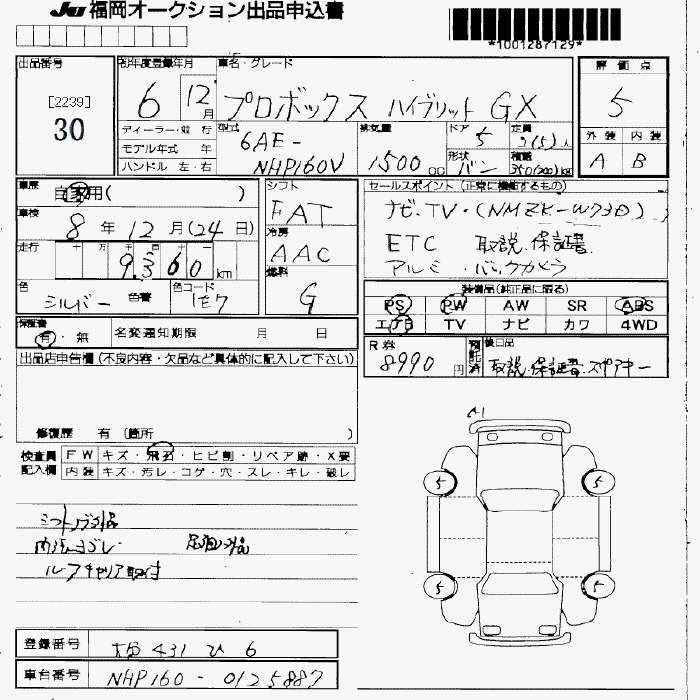 JU 福岡オークション出品申込書
*1001287129*
出品番号
[2239]
30
初年度登録年月
6 12月
車名・グレード
プロボックス ハイブリット GX
評価点
5
外装 内装
A B
ディーラー・並行
モデル年式 年
ハンドル 左・右
型式
6AE-
NHP160V
排気量
1500 CC
ドア
5
形状
バン
定員
2(5)人
積載
350(200)kg
車歴
自家用( )
車検
8年 12月(24日)
走行
十万 万 千 百 十 一
9.3 60 km
色
シルバー
色替
色コード
1E7
シフト
FAT
冷房
AAC
燃料
G
セールスポイント (正常に機能するもの)
ナビ.TV・(NMZK-W73D)
ETC 取説.保証書
アルミ・バックカメラ
装備品(純正品に限る)
PS PW AW SR ABS
エアB TV ナビ カワ 4WD
保証書
有・無
名変通知期限 月 日
R券
8990円
預託済
後日品
取説.保証書.スペアキー
出品店申告欄 (不良内容・欠品など具体的に記入して下さい)
修復歴 有 (箇所 )
検査員記入欄
FW キズ・飛石・ヒビ割・リペア跡・X要
内装 キズ・汚レ・コゲ・穴・スレ・キレ・破レ
A1
5 5
5 5
ルーフキャリア取付
登録番号
431 ひ 6
車台番号
NHP160-0125887